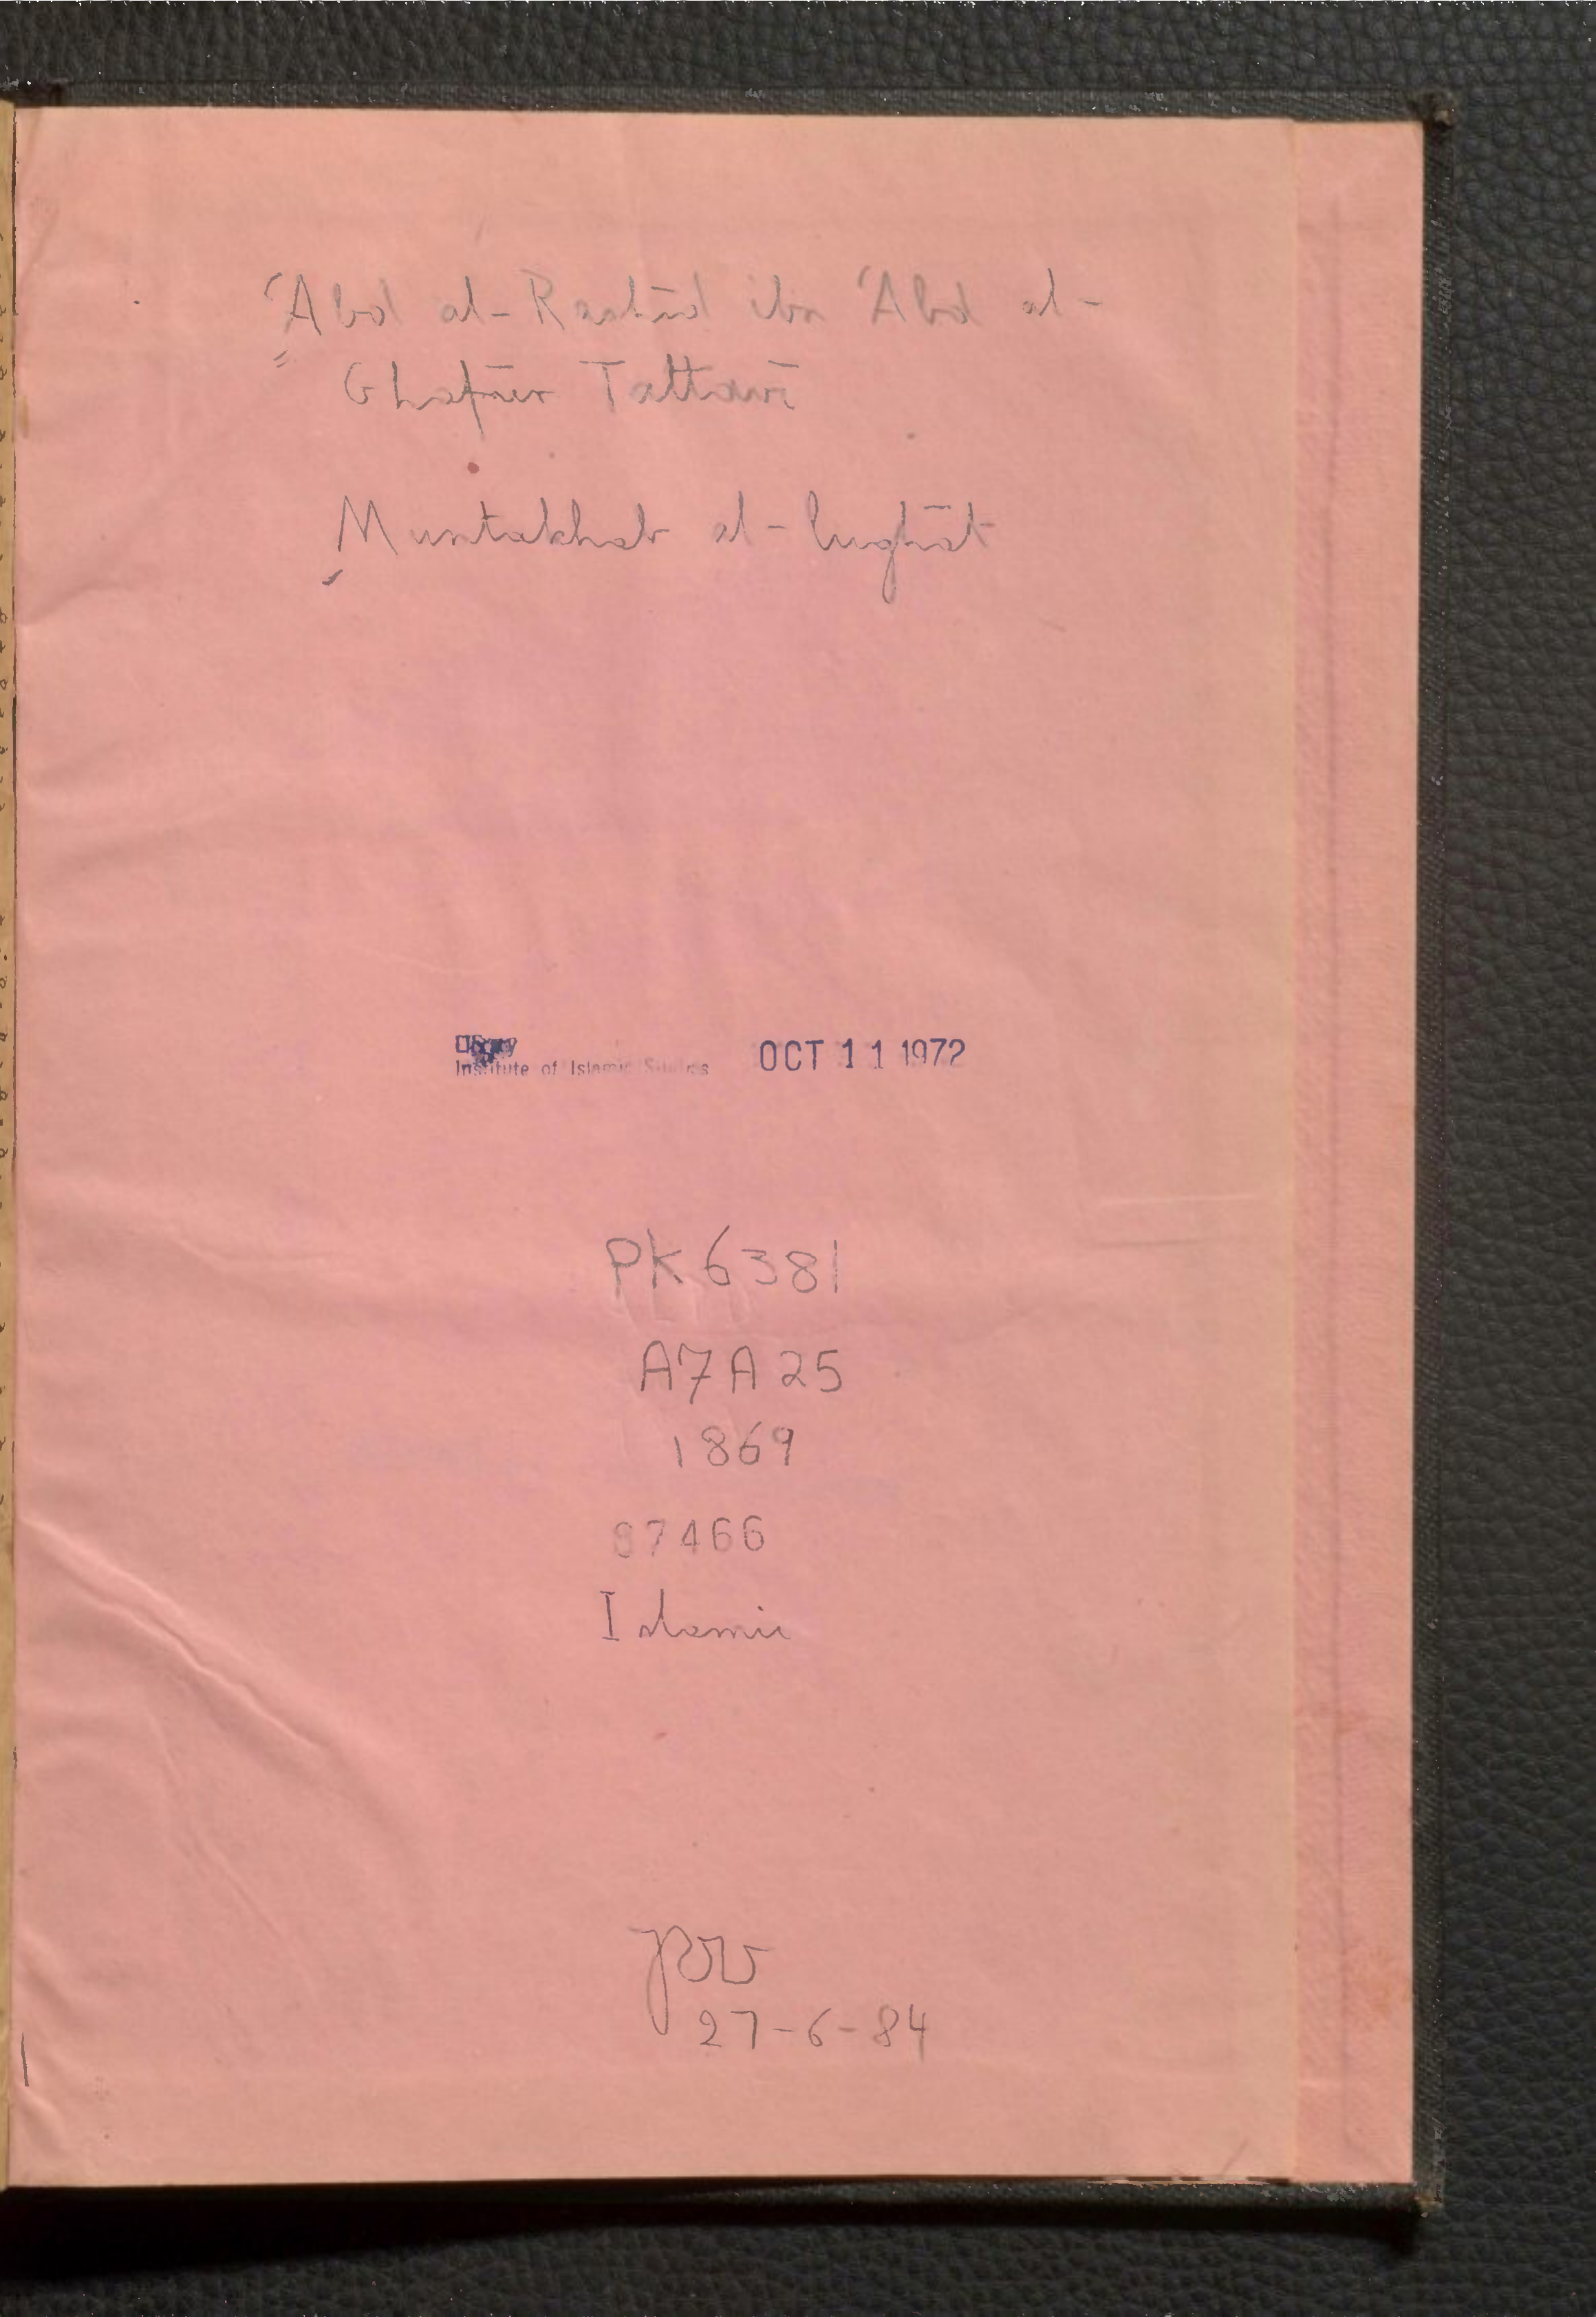 ʿAbd al-Rashīd ibn ʿAbd al-
Ghafūr Tattavī
Muntakhab al-lughāt
Library
Institute of Islamic Studies OCT 11 1972
PK6381
A7A25
1869
87466
Islamic
27-6-84